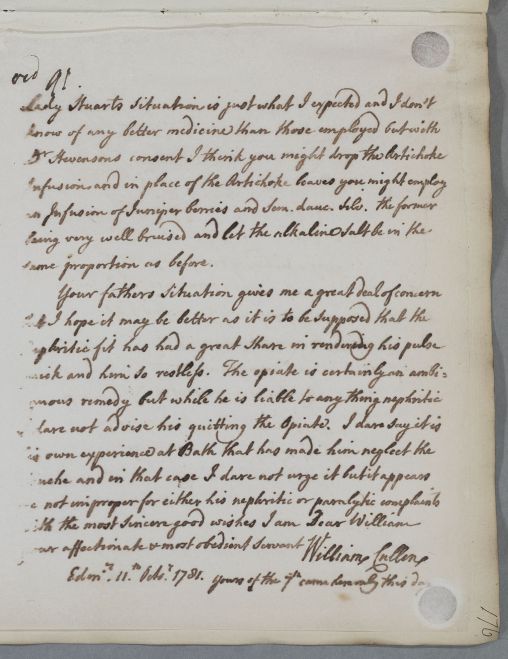 Lady Stuarts Situation is just what I expected and I don't
know of any better medicine than those employed but with
Dr Stevensons consent I think you might drop the Artichoke
Infusion and in place of the Artichoke leaves you might employ
an Infusion of Juniper berries and Sem. dauc. Silv. the former
being very well bruised and let the alkaline Salt be in the
same proportion as before.
Your fathers situation gives me a great deal of concern
but I hope it may be better as it is to be Supposed that the
nephritic fit has had a great Share in rendering his pulse
quick and him so restless. The opiate is certainly an ambi=
guous remedy but while he is liable to any thing nephritic
I dare not advise his quitting the Opiate. I dare say it is
his own experience at Bath that has made him neglect the
and in that case I dare not urge it but it appears
me not improper for either his nephritic or paralytic complaints
with the most sincere good wishes I am Dear William
your affectionate & most obedient servant William Cullen
Edinr. 11.th Octr. 1781. yours of the 7th came here only this day
176